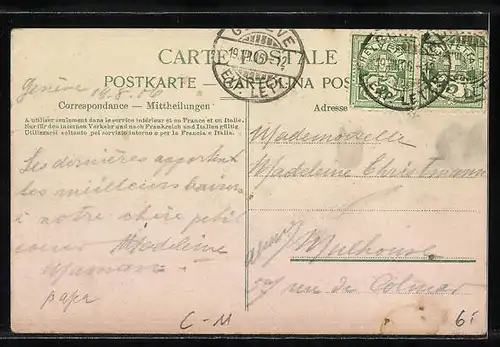 CARTE POSTALE
POSTKARTE — CARTOLINA POSTALE
Correspondance — Mittheilungen
Adresse
A utiliser seulement dans le service intérieur et en France et en Italie.
Nur für den internen Verkehr und nach Frankreich und Italien gültig.
Utilizzarsi soltanto pel servizio interno e per la Francia e Italia.
GENÈVE
EXP. LETT.
HELVETIA
Genève 19.8.06
Les dernières apportent
les meilleurs baisers
à notre chère petite
Madeleine
Maman
papa
Mademoiselle
Madeleine Christmann
Mulhouse
rue de Colmar
C-11
6.-